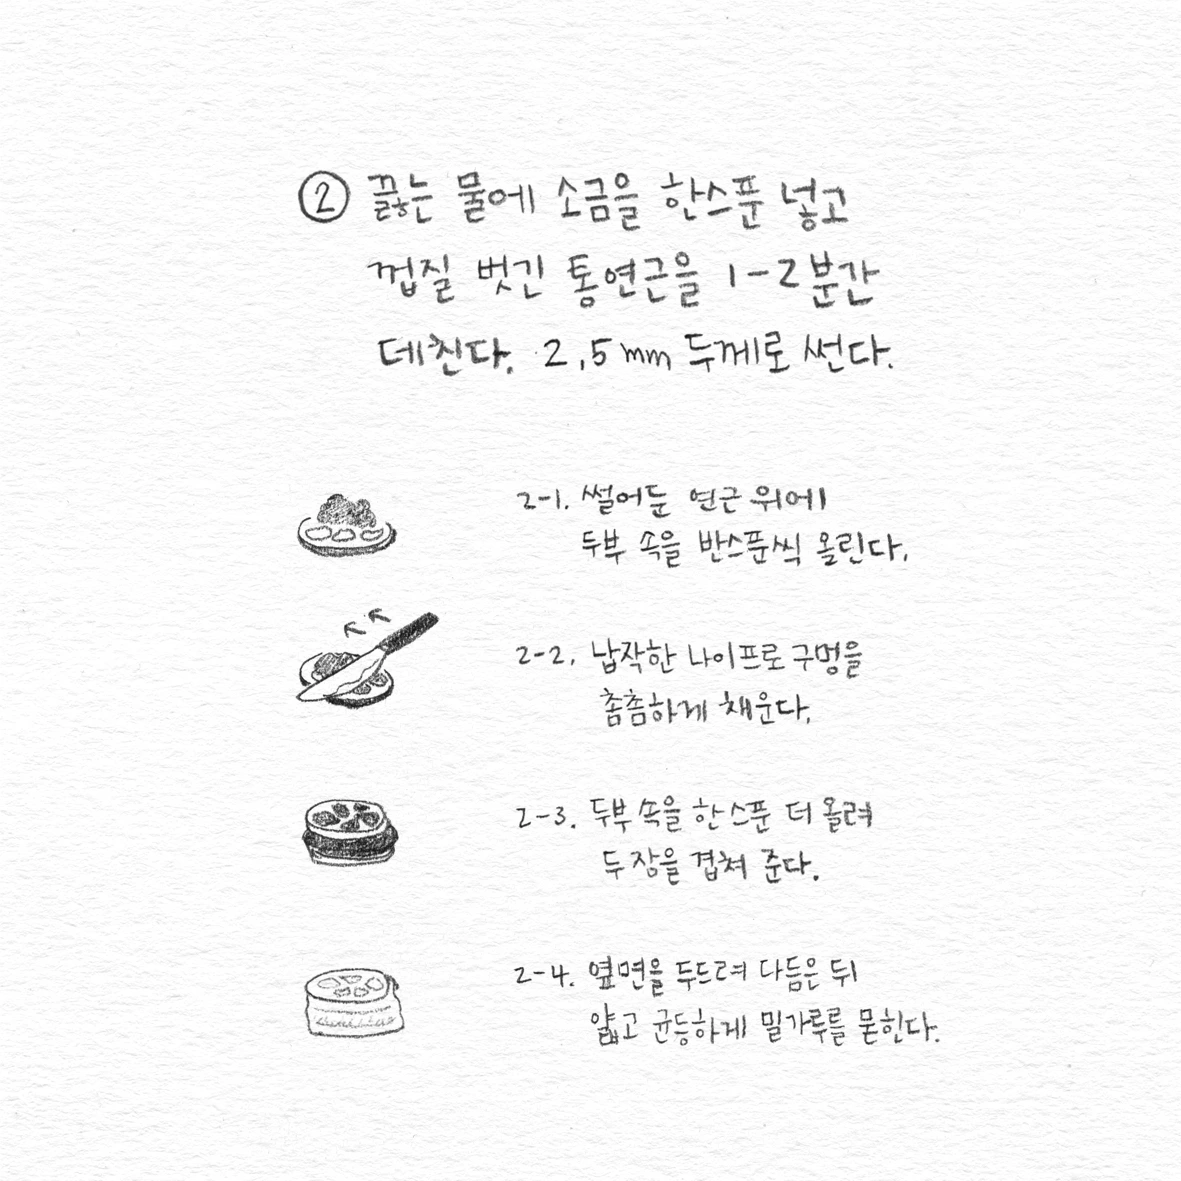 ② 끓는 물에 소금을 한스푼 넣고
껍질 벗긴 통연근을 1-2분간
데친다. 2,5mm 두께로 썬다.
2-1. 썰어둔 연근 위에
두부 속을 반스푼씩 올린다.
2-2. 납작한 나이프로 구멍을
촘촘하게 채운다.
2-3. 두부 속을 한 스푼 더 올려
두 장을 겹쳐 준다.
2-4. 옆면을 두드려 다듬은 뒤
얇고 균등하게 밀가루를 묻힌다.